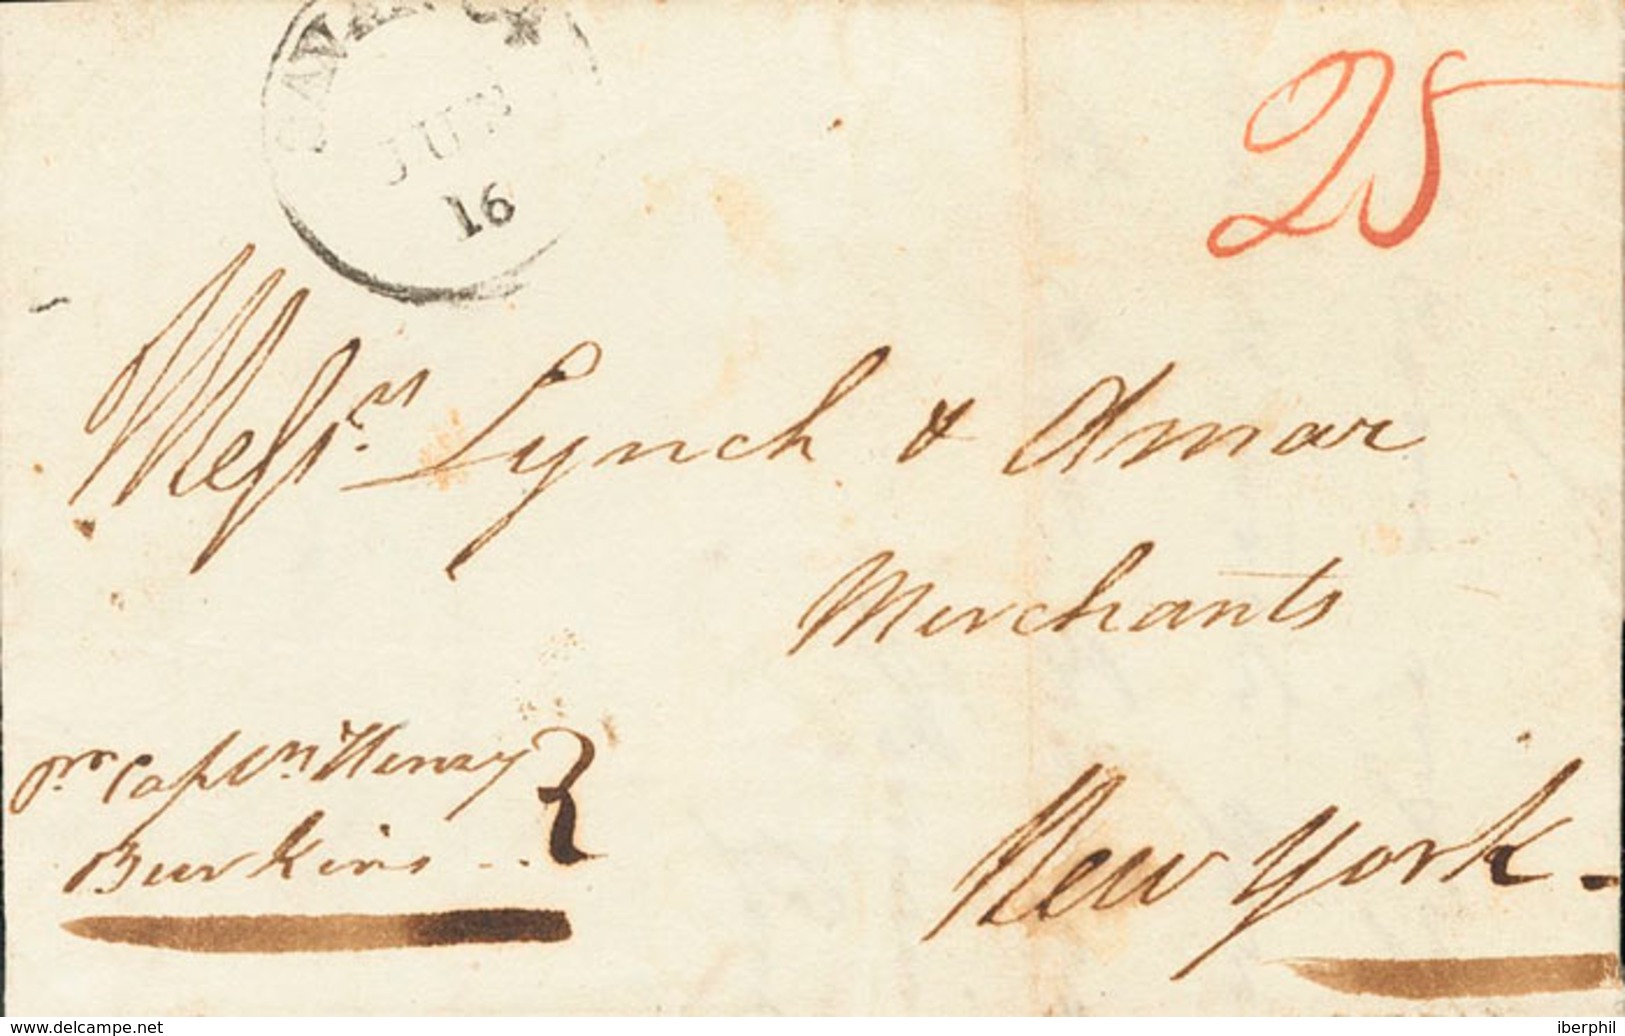 SAVANNA
JUN
16
25
Messrs. Lynch & Aymar
Merchants
pr Captn Henry
Burkins
New York
www.delcampe.net
iberphil